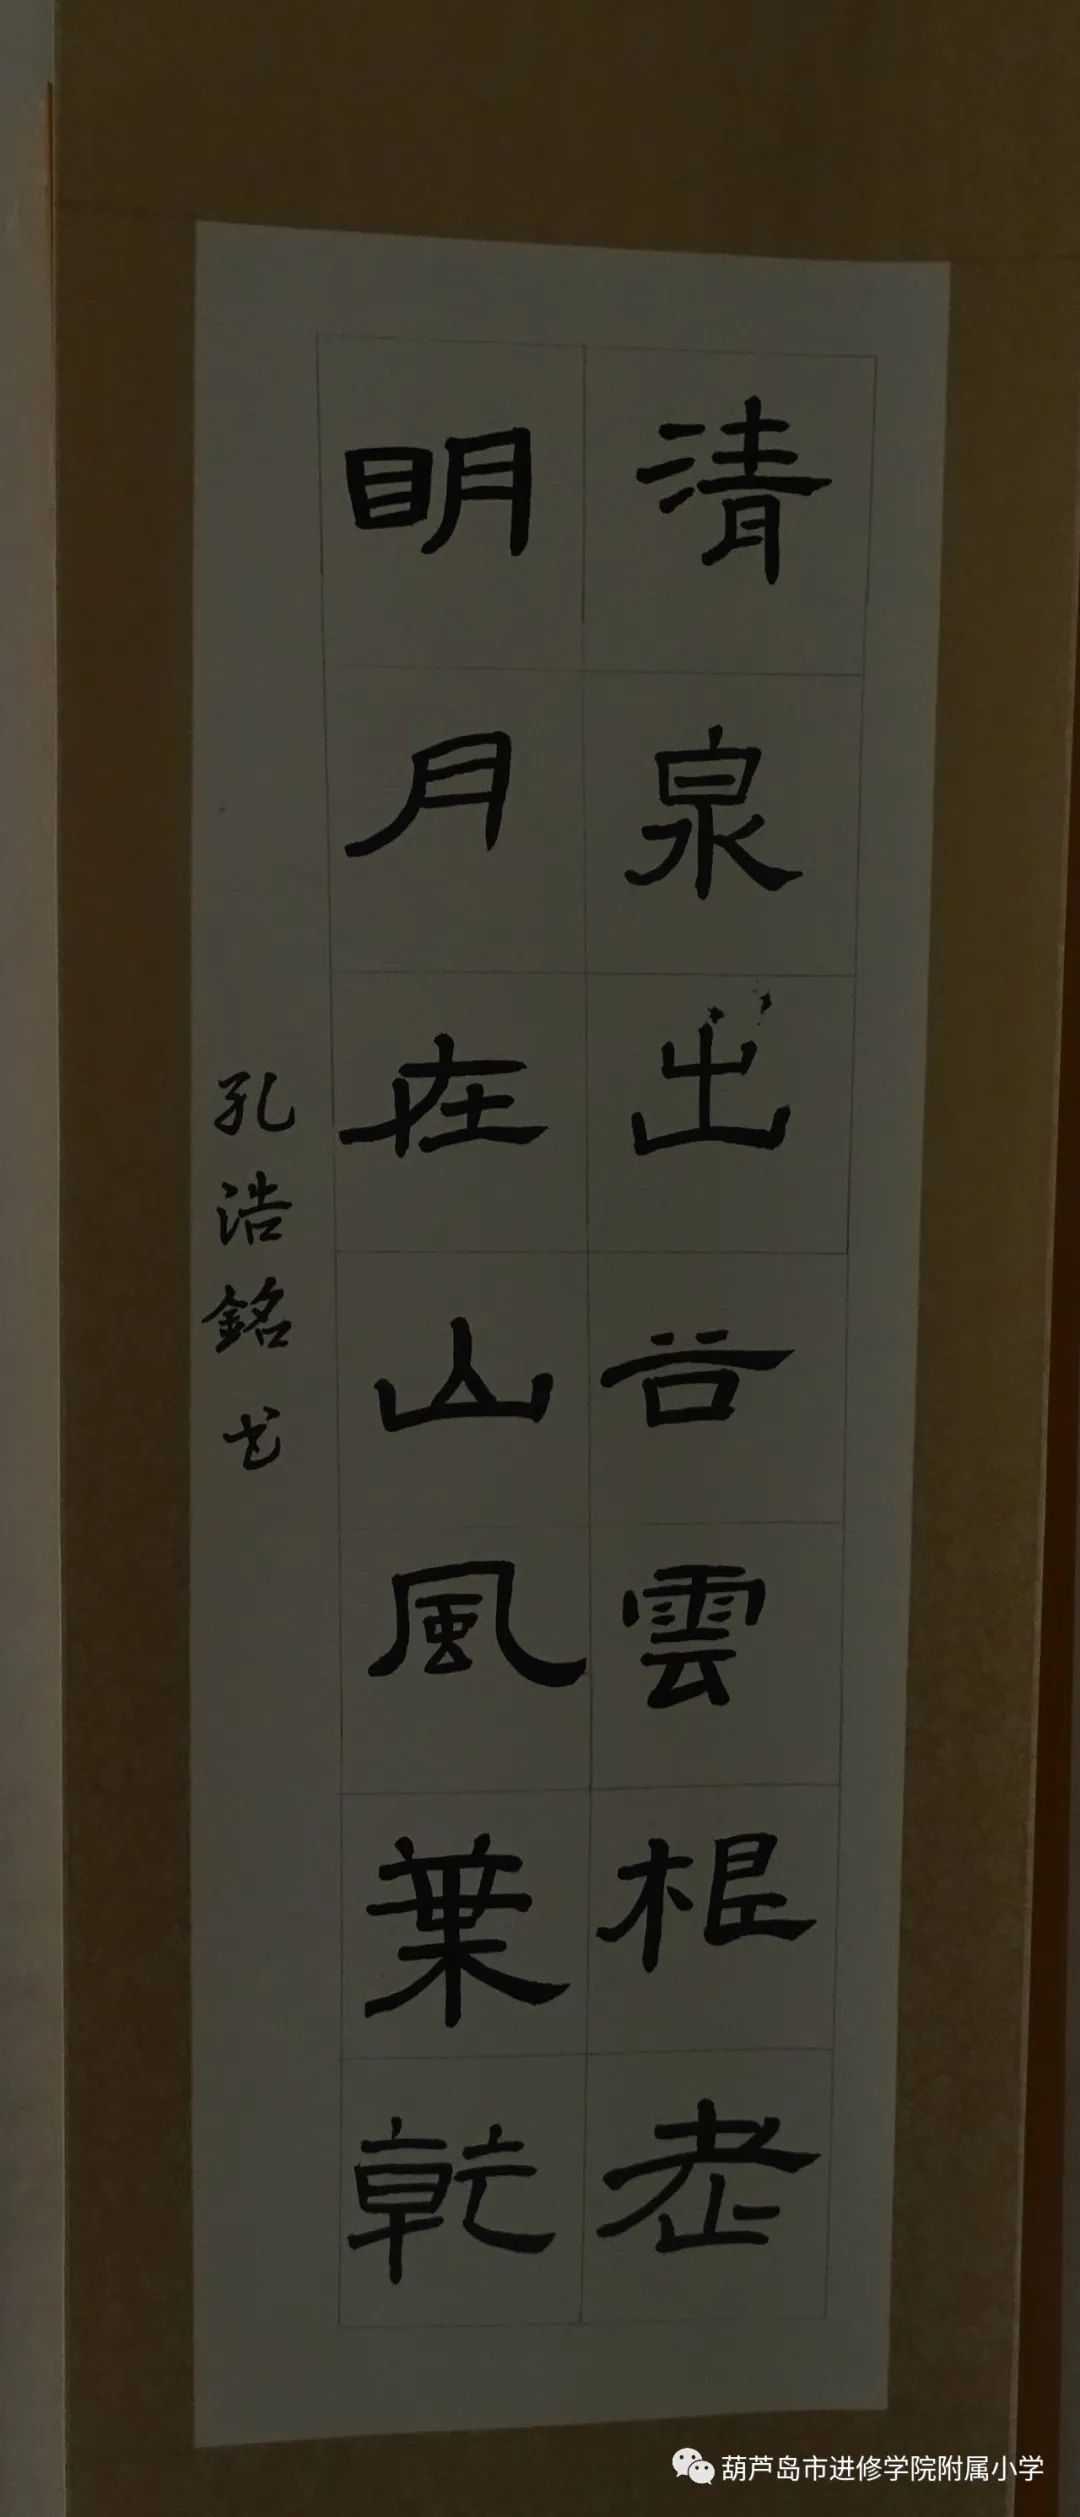 清泉出谷雲根老
明月在山風葉乾
孔浩銘书
葫芦岛市进修学院附属小学